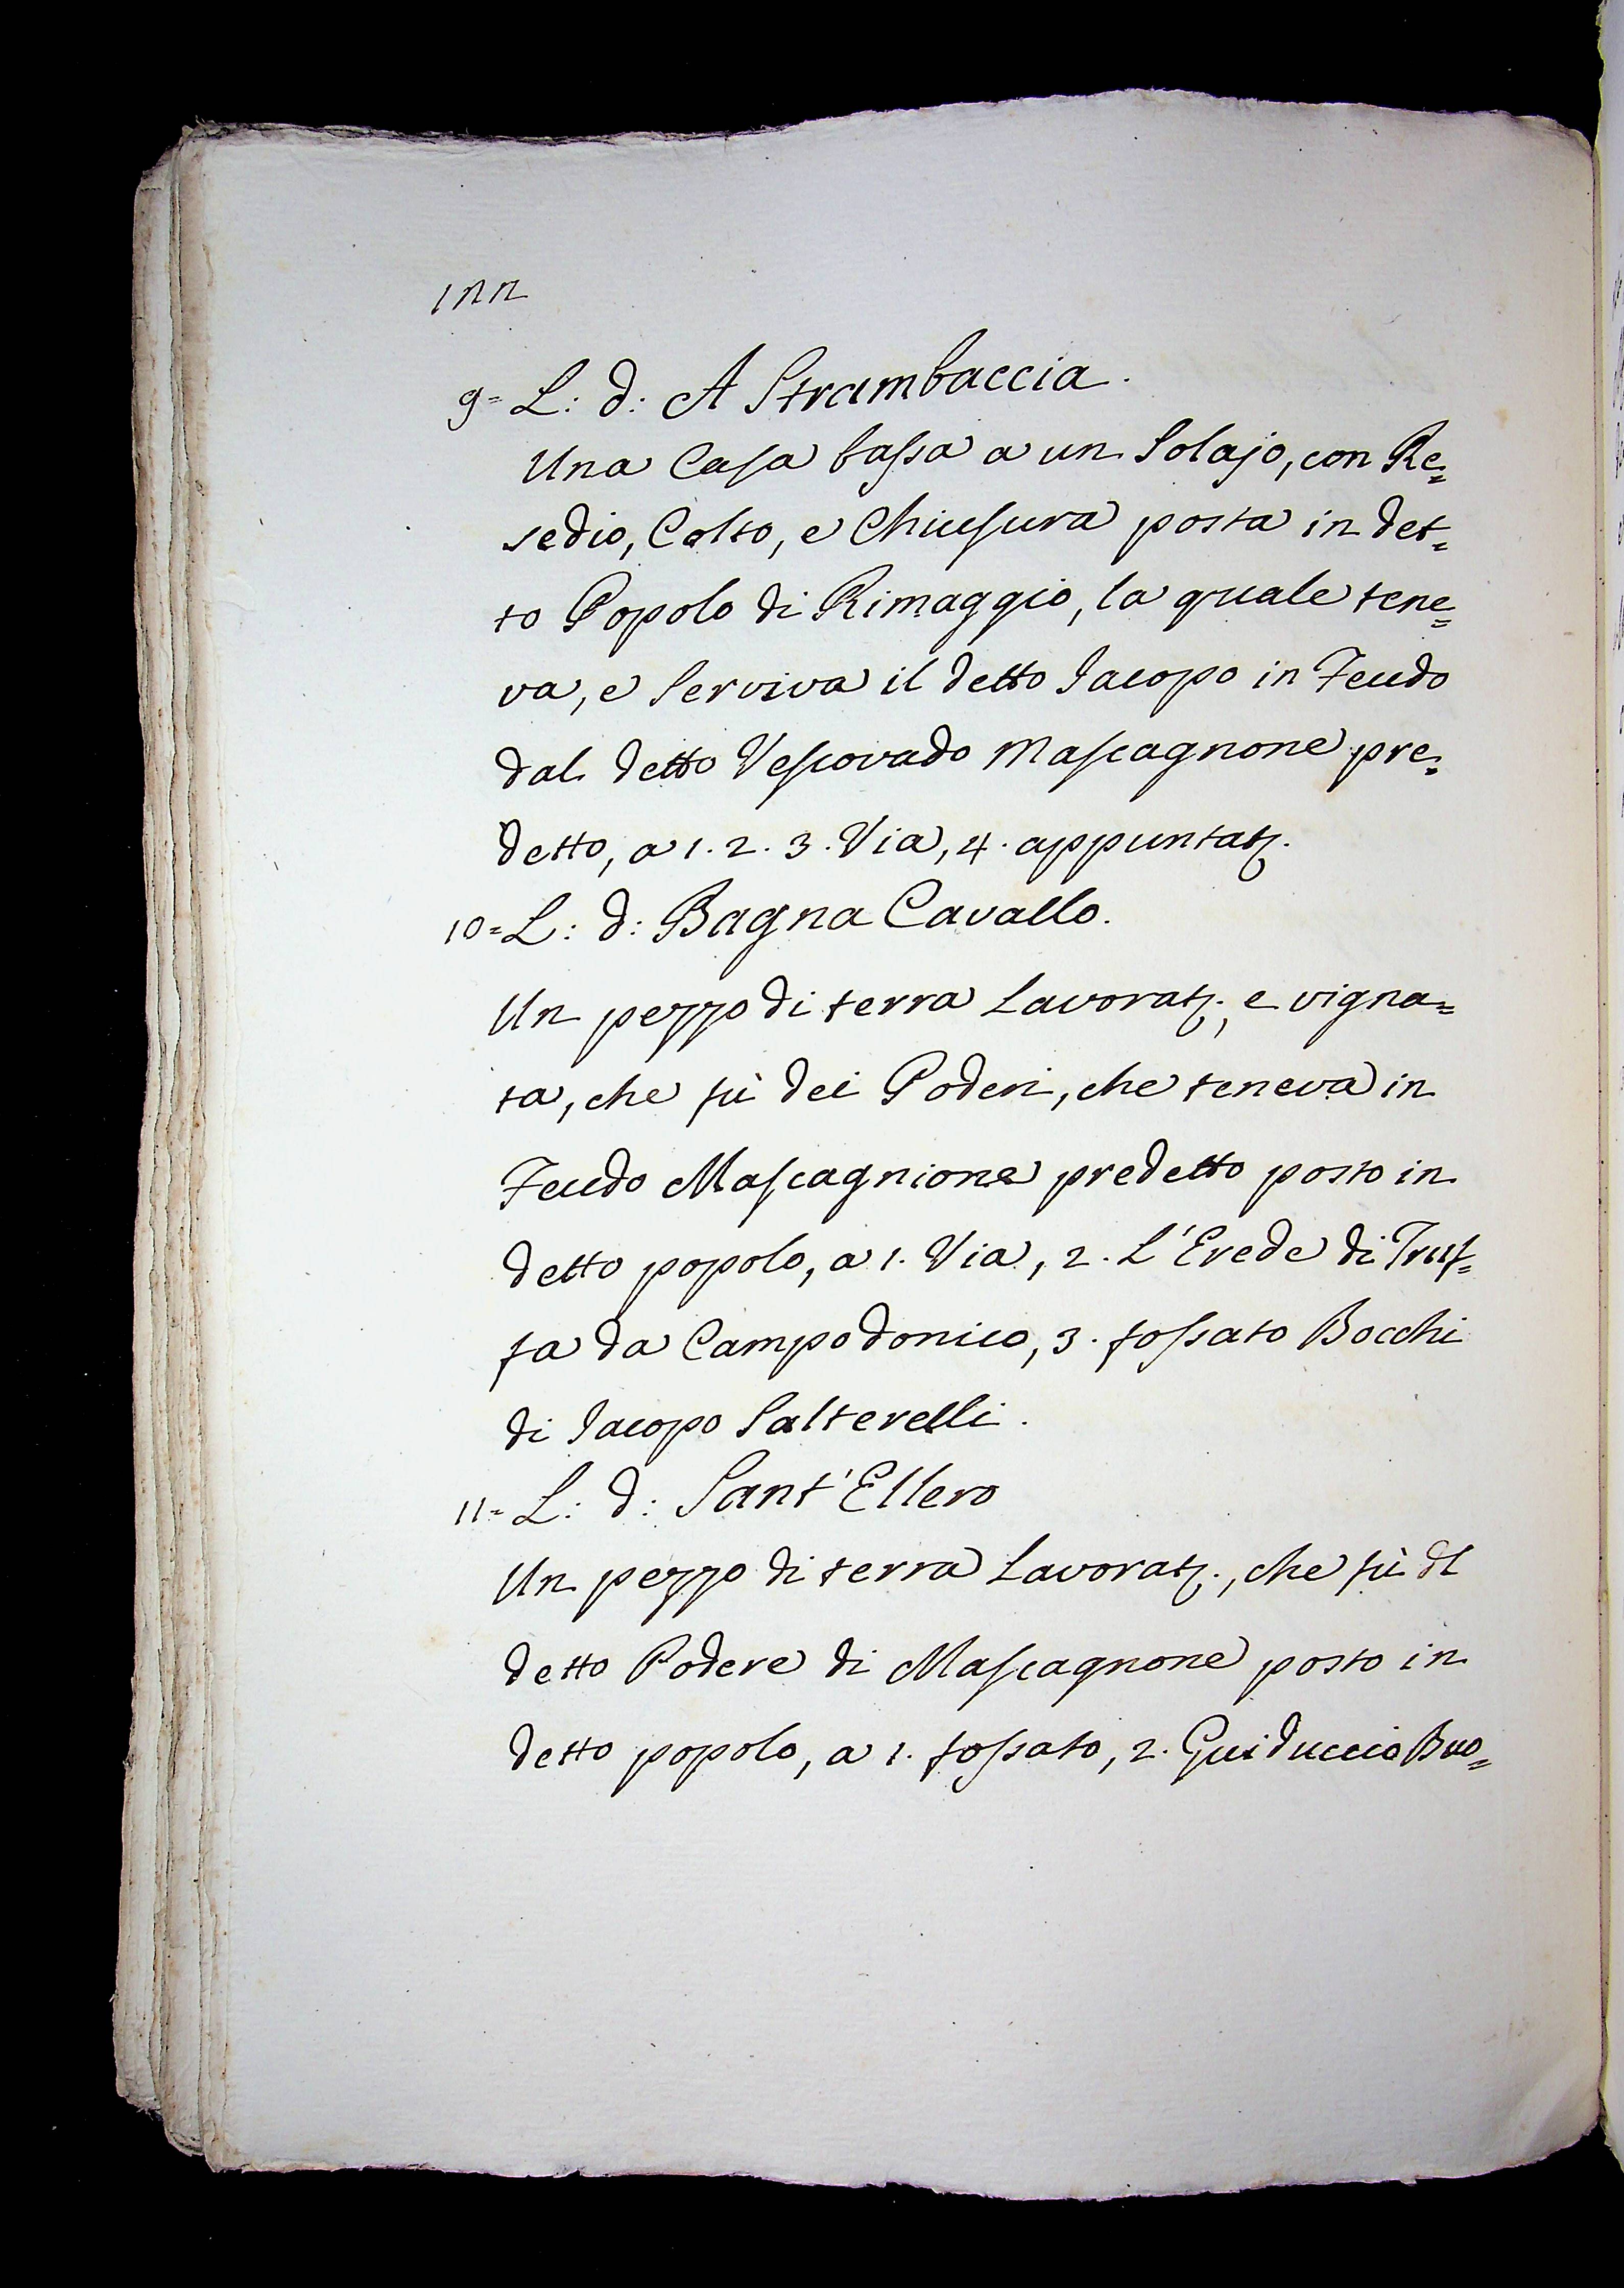 122
9= L: d: A Strambaccia.
Una Casa bassa a un Solajo, con Re=
sedio, Colto, e Chiusura posta in det=
to Popolo di Rimaggio, la quale tene=
va, e Serviva il detto Jacopo in Feudo
dal detto Vescovado Mascagnone pre=
detto, a 1. 2. 3. Via, 4. appuntat.
10= L: d: Bagna Cavallo.
Un pezzo di terra Lavorat., e vigna=
ta, che fù dei Poderi, che teneva in
Feudo Mascagnione predetto posto in
detto popolo, a 1. Via, 2. L'Erede di Truf=
fa da Campodonico, 3. fossato Bocchi
di Jacopo Salterelli.
11= L: d: Sant'Ellero
Un pezzo di terra Lavorat., che fù dl
detto Podere di Mascagnone posto in
detto popolo, a 1. fossato, 2. Guiduccio Buo=